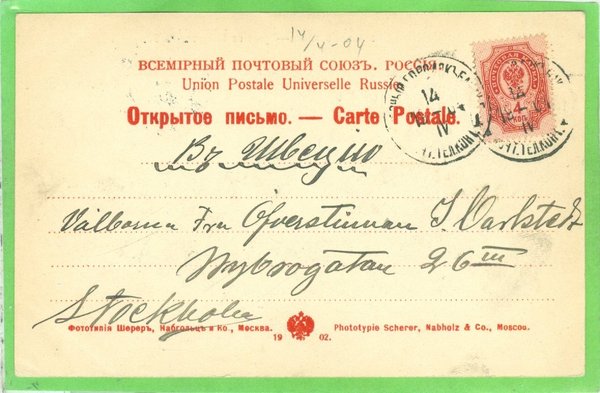 14/4-04
ВСЕМІРНЫЙ ПОЧТОВЫЙ СОЮЗЪ. РОССІЯ
Union Postale Universelle Russie
Открытое письмо. — Carte Postale.
14
IV
4
КОП.
Въ Швецію
Välborna Fru Öfverstinnan J. Carlstedt
Nybrogatan 26 III
Stockholm
Фототипія Шереръ, Набгольцъ и Ко., Москва.
19 02.
Phototypie Scherer, Nabholz & Co., Moscou.